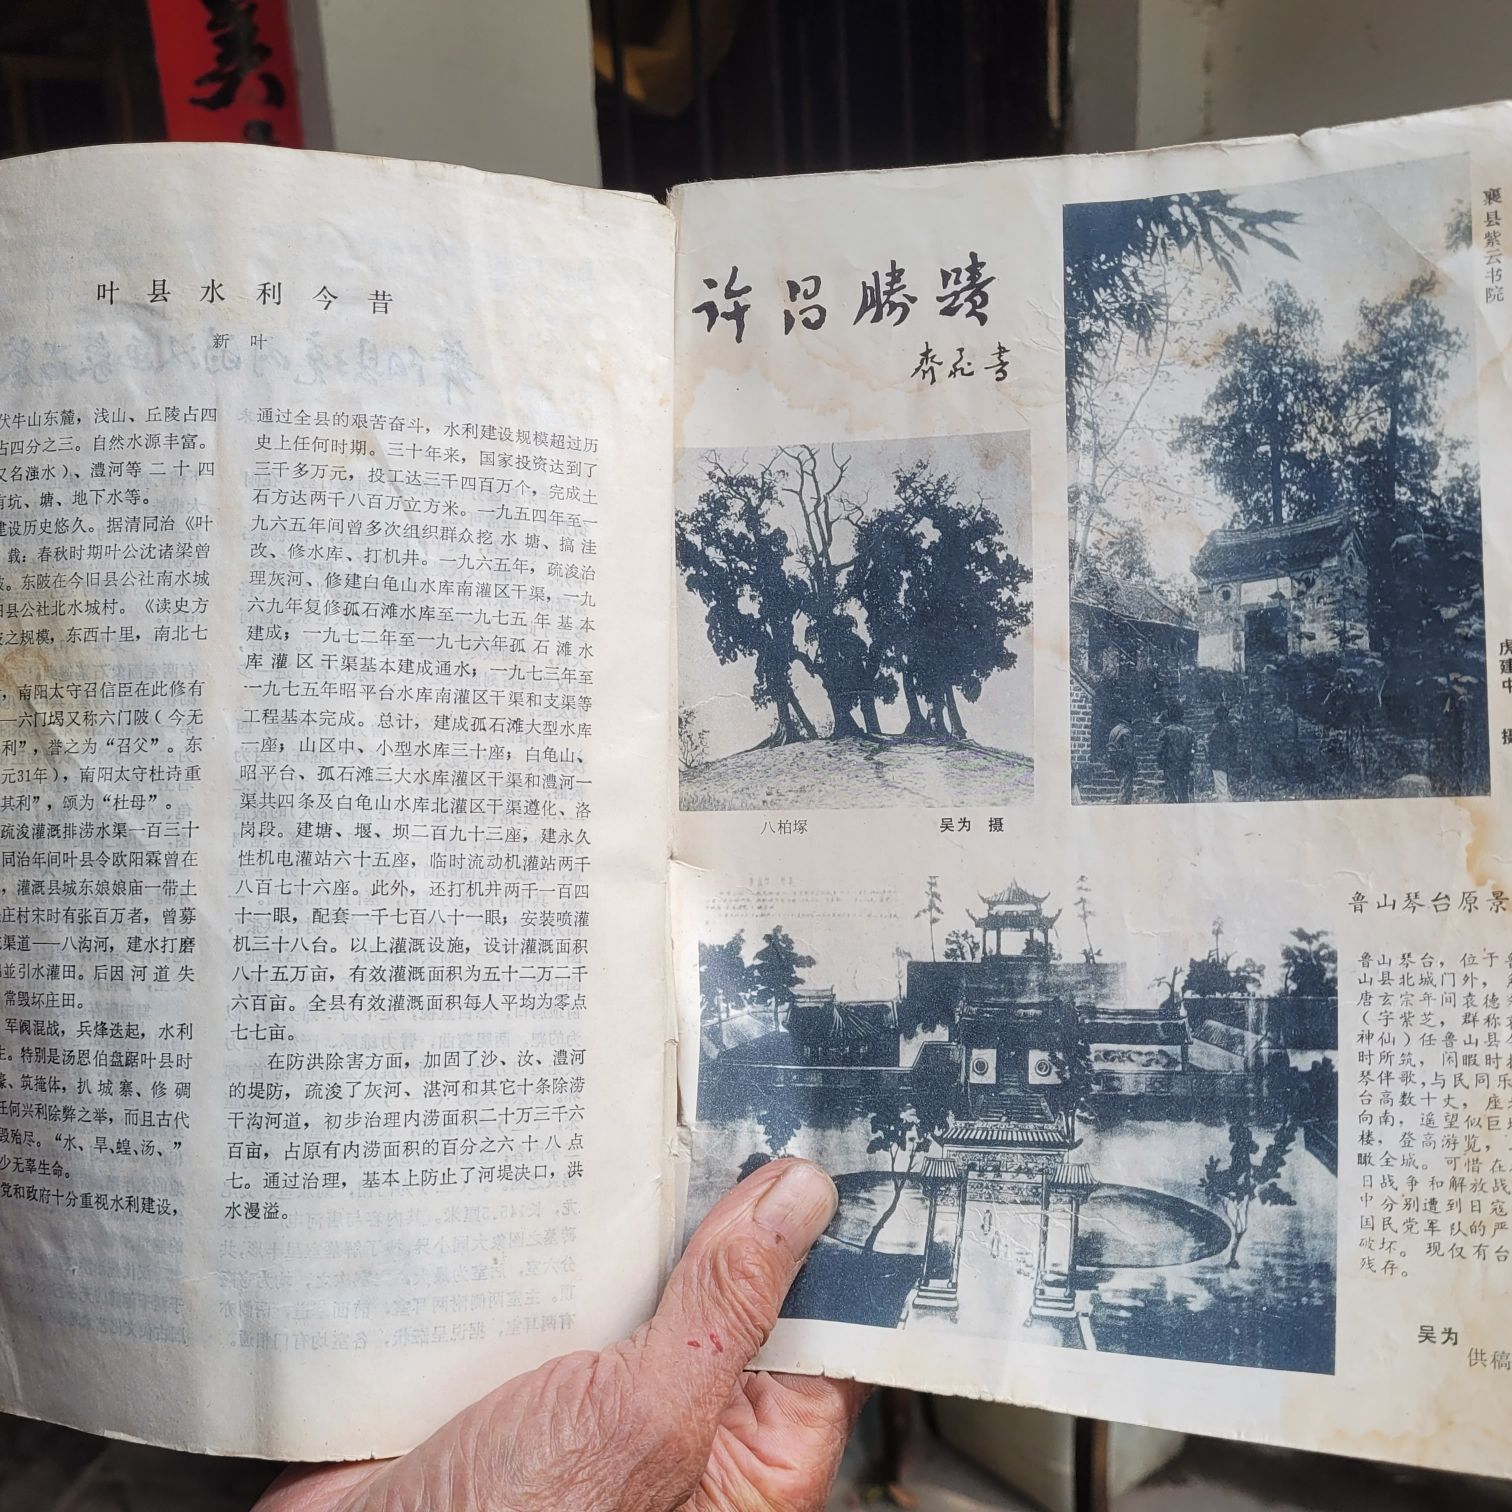 美
叶县水利今昔
新 叶
伏牛山东麓，浅山、丘陵占四
占四分之三。自然水源丰富。
又名滍水）、澧河等二十四
有坑、塘、地下水等。
建设历史悠久。据清同治《叶
载：春秋时期叶公沈诸梁曾
陂。东陂在今旧县公社南水城
旧县公社北水城村。《读史方
陂之规模，东西十里，南北七
，南阳太守召信臣在此修有
——六门堨又称六门陂（今无
利”，誉之为“召父”。东
元31年），南阳太守杜诗重
其利”，颂为“杜母”。
疏浚灌溉排涝水渠一百三十
同治年间叶县令欧阳霖曾在
，灌溉县城东娘娘庙一带土
庄村宋时有张百万者，曾募
渠道——八沟河，建水打磨
並引水灌田。后因河道失
常毁坏庄田。
军阀混战，兵烽迭起，水利
生。特别是汤恩伯盘踞叶县时
壕、筑掩体，扒城寨、修碉
任何兴利除弊之举，而且古代
毁殆尽。“水、旱、蝗、汤、”
少无辜生命。
党和政府十分重视水利建设，
通过全县的艰苦奋斗，水利建设规模超过历
史上任何时期。三十年来，国家投资达到了
三千多万元，投工达三千四百万个，完成土
石方达两千八百万立方米。一九五四年至一
九六五年间曾多次组织群众挖水塘、搞洼
改、修水库、打机井。一九六五年，疏浚治
理灰河、修建白龟山水库南灌区干渠，一九
六九年复修孤石滩水库至一九七五年基本
建成；一九七二年至一九七六年孤石滩水
库灌区干渠基本建成通水；一九七三年至
一九七五年昭平台水库南灌区干渠和支渠等
工程基本完成。总计，建成孤石滩大型水库
一座；山区中、小型水库三十座；白龟山、
昭平台、孤石滩三大水库灌区干渠和澧河一
渠共四条及白龟山水库北灌区干渠遵化、洛
岗段。建塘、堰、坝二百九十三座，建永久
性机电灌站六十五座，临时流动机灌站两千
八百七十六座。此外，还打机井两千一百四
十一眼，配套一千七百八十一眼；安装喷灌
机三十八台。以上灌溉设施，设计灌溉面积
八十五万亩，有效灌溉面积为五十二万二千
六百亩。全县有效灌溉面积每人平均为零点
七七亩。
在防洪除害方面，加固了沙、汝、澧河
的堤防，疏浚了灰河、湛河和其它十条除涝
干沟河道，初步治理内涝面积二十万三千六
百亩，占原有内涝面积的百分之六十八点
七。通过治理，基本上防止了河堤决口，洪
水漫溢。
许昌勝蹟
齐飞書
八柏塚 吴为 摄
襄县紫云书院
虎建中 摄
鲁山琴台原景
鲁山琴台，位于鲁
山县北城门外，
唐玄宗年间袁德
（字紫芝，群称
神仙）任鲁山县
时所筑，闲暇时
琴伴歌，与民同乐
台高数十丈，座
向南，遥望似巨
楼，登高游览，
瞰全城。可惜在
日战争和解放战
中分别遭到日寇
国民党军队的严
破坏。现仅有台
残存。
吴为
供稿